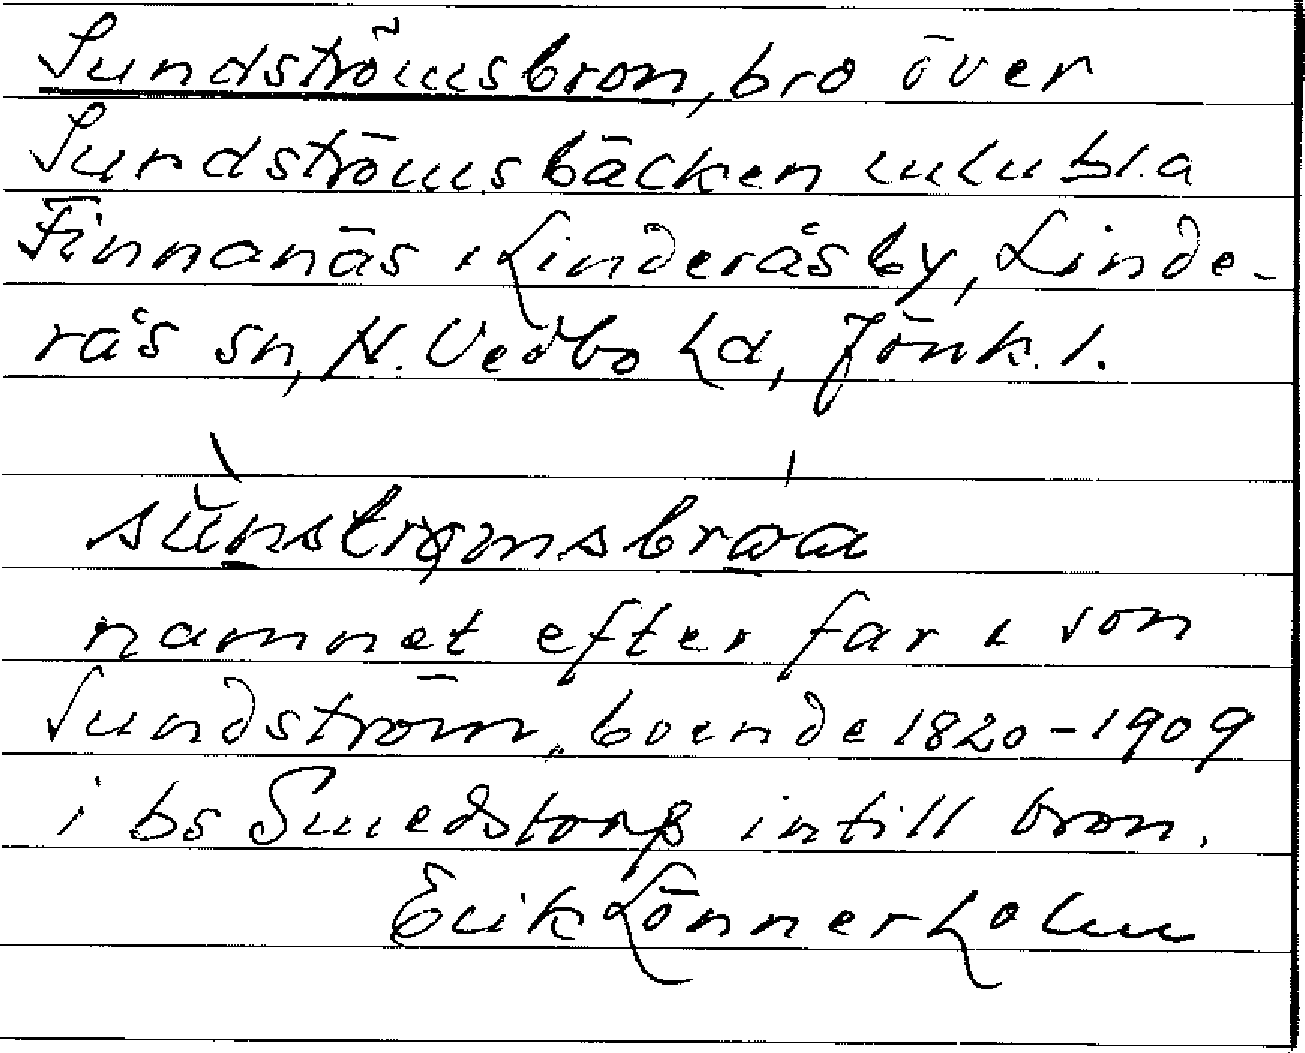 Sundströmsbron, bro över
Sundströmsbäcken
Finnanäs i Linderåsby, Linde-
rås sn, N. Vedbo hd, Jönk. l.
namnet efter far o son
Sundström, boende 1820-1909
i bs Smedstorp intill bron.
Erik Lönnerholm